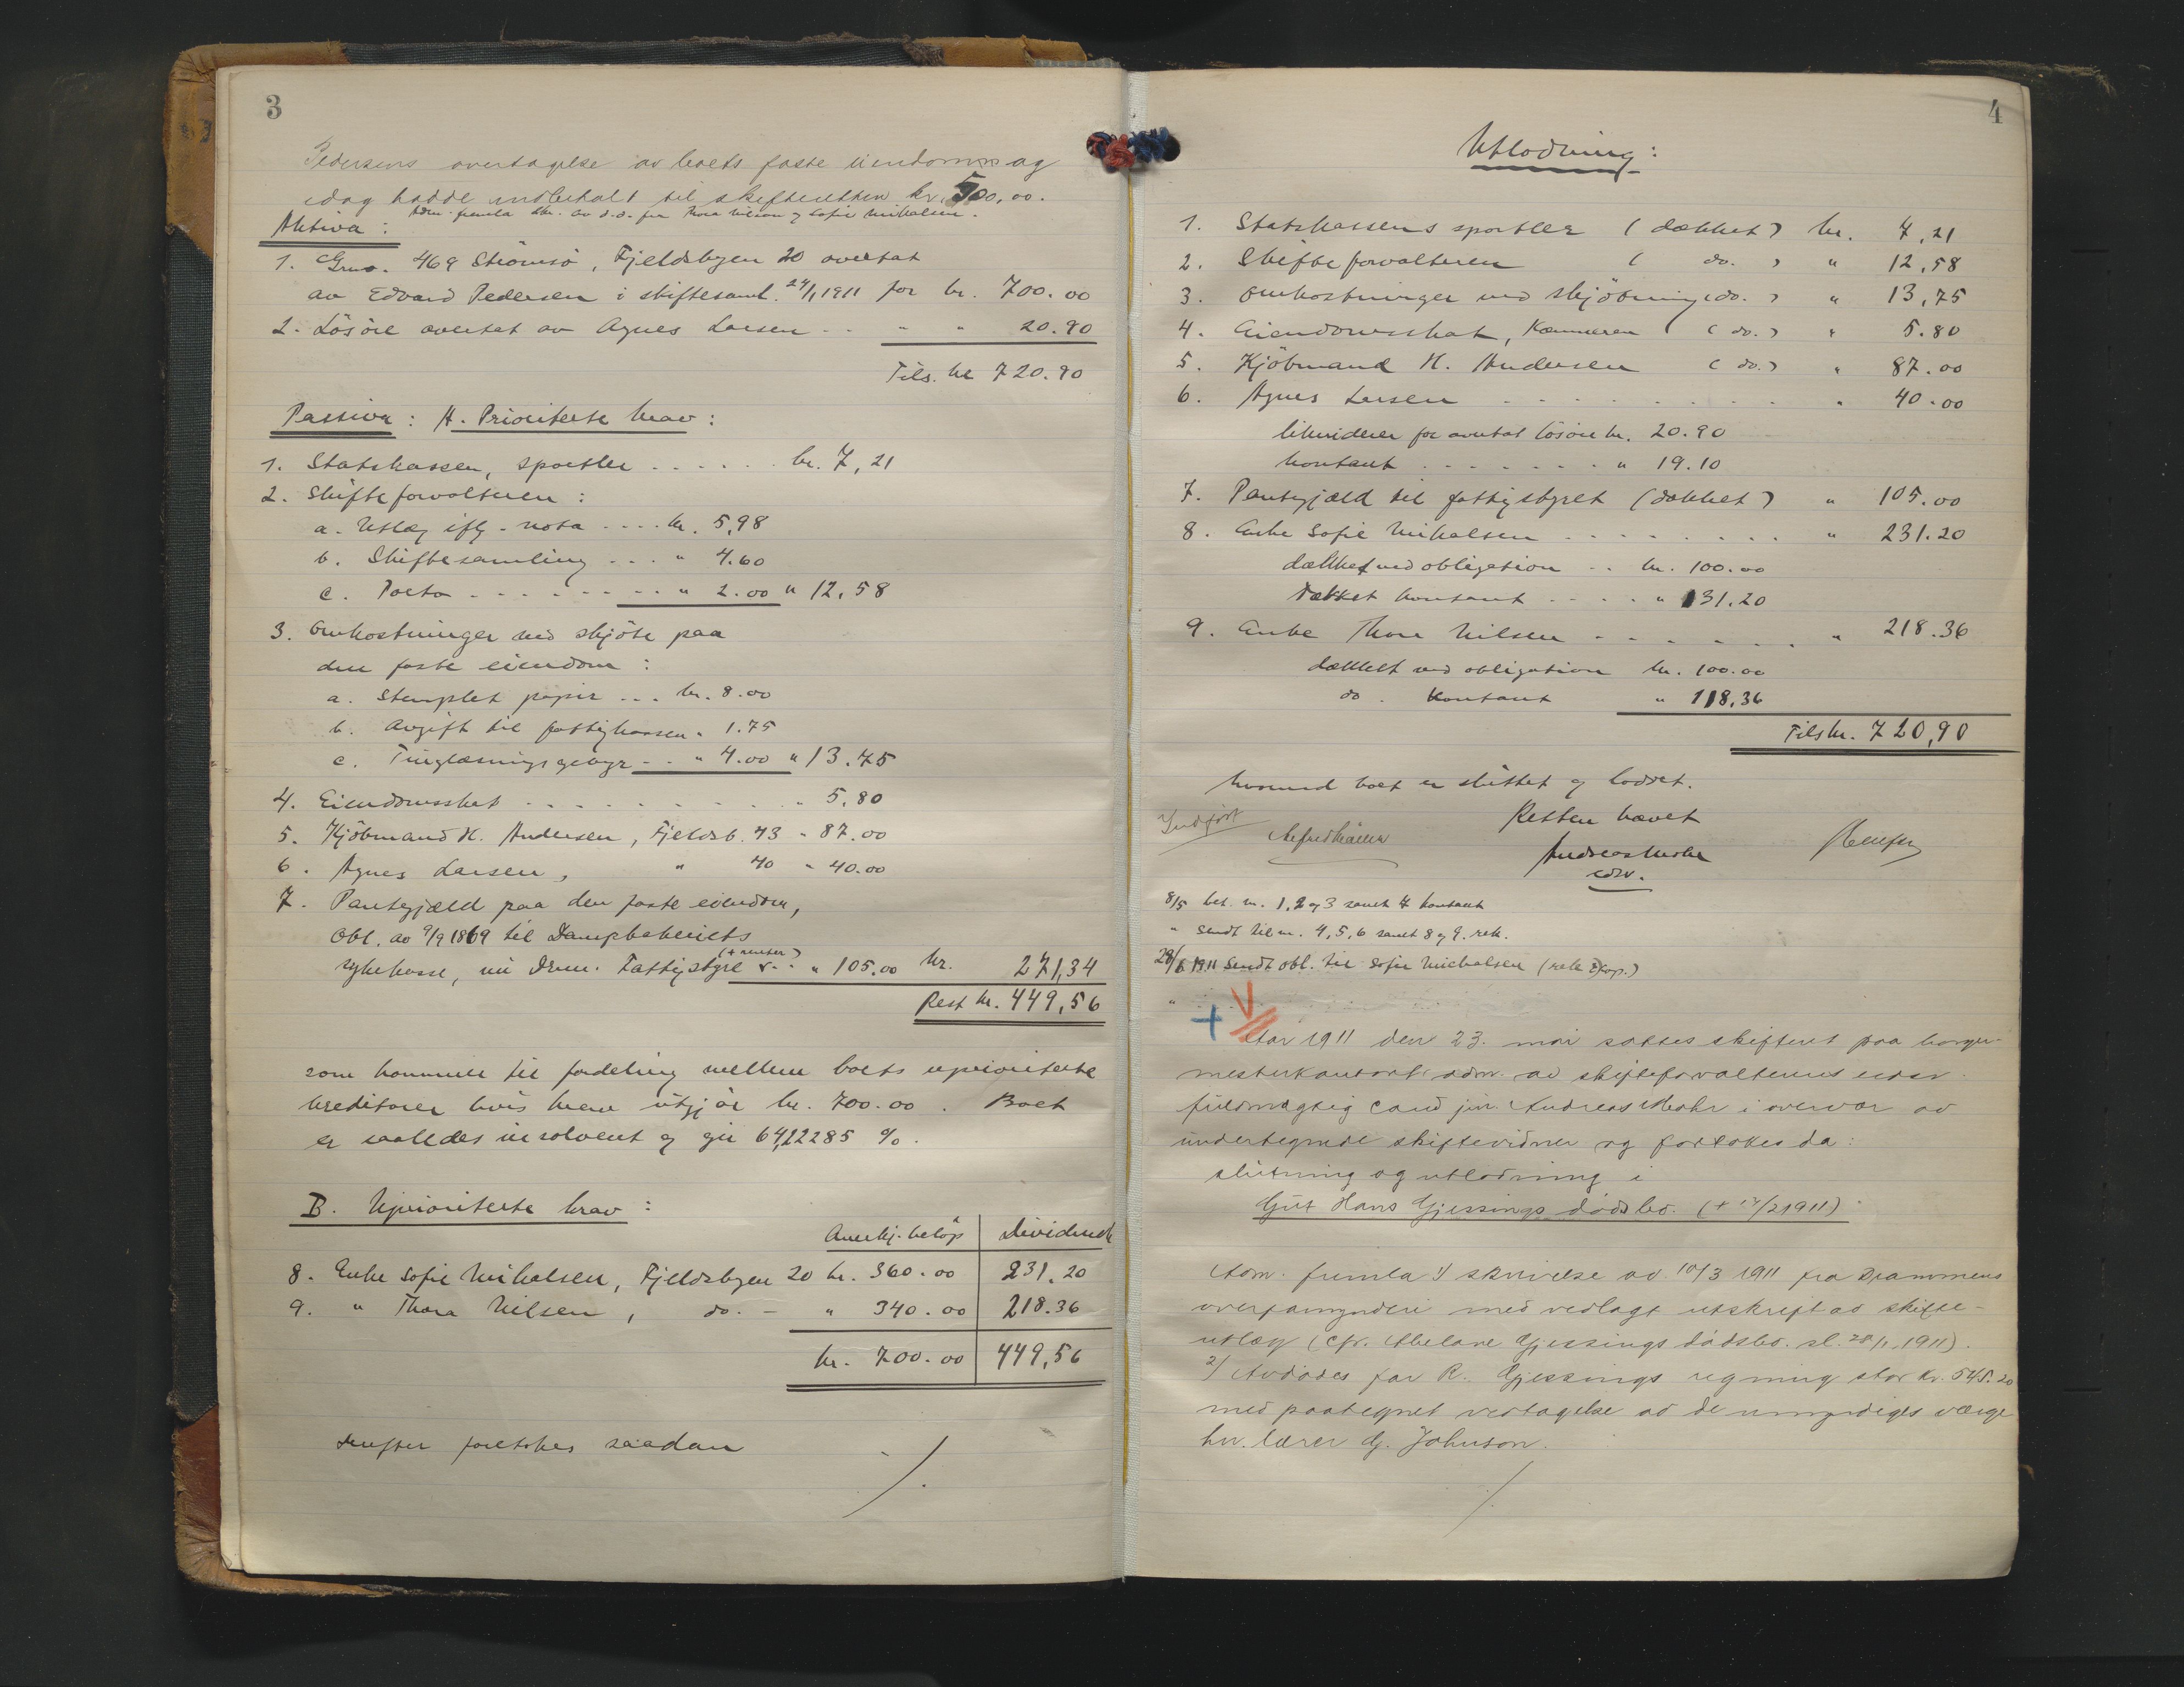 3
Pedersens overtagelse av boets faste eiendom og
idag hadde indbetalt til skifteretten kr. 500,00.
Adm. fremla skr. av d.d. fra Thora Nilsen og Sofie Mikalsen.
Aktiva:
1. Grno. 469 Strömsö, Fjeldsbyen 20 overtat
av Edvard Pedersen i skiftesaml. 24/1 1911 for kr. 700.00
2. Lösöre overtat av Agnes Larsen - - - " 20.90
Tils. kr 720.90
Passiva: A. Prioriterte krav:
1. Statskassen, sportler . . . . . . kr. 7,21
2. Skifteforvalteren:
a. Utlæg iflg. nota . . . . kr. 5,98
b. Skiftesamling . . . " 4.60
c. Porto - - - - - - - - " 2.00 " 12,58
3. Omkostninger ved skjöte paa
den faste eiendom:
a. Stemplet papir . . . kr. 8.00
b. Avgift til fattigkassen " 1.75
c. Tinglæsningsgebyr - - " 4.00 " 13.75
4. Eiendomsskat - - - - - - - - - " 5,80
5. Kjöbmand H. Andersen, Fjeldsb. 43 " 87.00
6. Agnes Larsen, " 40 " 40.00
7. Pantegjæld paa den faste eiendom,
Obl. av 9/9 1869 til Dampkekkeriets
(+ renter)
sykekasse, nu Drm. Fattigstyre - - " 105.00 kr. 271,34
Rest kr. 449,56
som kommer til fordeling mellem boets uprioriterte
kreditorer hvis krav utgjör kr. 700.00. Boet
er saaledes insolvent og gir 64,22285 %.
B. Uprioriterte krav:
Anerkj. belöp Dividende
8. Enke Sofie Mikalsen, Fjeldsbyen 20 kr. 360.00 231.20
9. " Thora Nilsen, do. - " 340.00 218.36
kr. 700.00 449,56
Derefter foretokes saadan ./.
4
Utlodning:
1. Statskassens sportler (dækket) kr. 7,21
2. Skifteforvalteren ( do. ) " 12,58
3. Omkostninger ved skjötning (do.) " 13,75
4. Eiendomsskat, Kæmneren (do.) " 5.80
5. Kjöbmand H. Andersen (do.) " 87.00
6. Agnes Larsen - - - - - - - - - " 40.00
likviderer for overtat lösöre kr. 20.90
kontant - - - - - - - " 19.10
7. Pantegjæld til fattigstyret (dækket) " 105.00
8. Enke Sofie Mikalsen - - - - - - - - " 231.20
dækket ved obligation . . kr. 100.00
dækket kontant - - - - " 131.20
9. Enke Thora Nilsen - - - - - - - " 218.36
dækket ved obligation kr. 100.00
do. kontant " 118,36
Tils kr. 720,90
hvormed boet er sluttet og loddet.
Retten hævet
Indfört
Andreas Mohr
edsv.
8/5 bet. nr. 1, 2 og 3 samt 7 kontant
" sendt til nr. 4, 5, 6 samt 8 og 9. rek.
28/6 1911 Sendt obl. til Sofie Michalsen (rek. )
Aar 1911 den 23. mai sattes skifteret paa borger-
mesterkontoret adm. av skifteforvalterens edsv.
fuldmægtig cand jur. Andreas Mohr i overvær av
undertegnede skiftevidner og foretokes da:
slutning og utlodning i
Gut Hans Gjessings dödsbo. (+ /2 1911)
Adm. fremla 1) skrivelse av 10/3 1911 fra Drammens
overformynderi med vedlagt utskrift av skifte-
utlæg (cfr. Abelone Gjessings dödsbo. sl. 28/1 1911).
2) Avdödes far R. Gjessings regning stor kr. 545.20
med paategnet vedtagelse av de umyndiges værge
hr. lærer G. Johnson.
./.